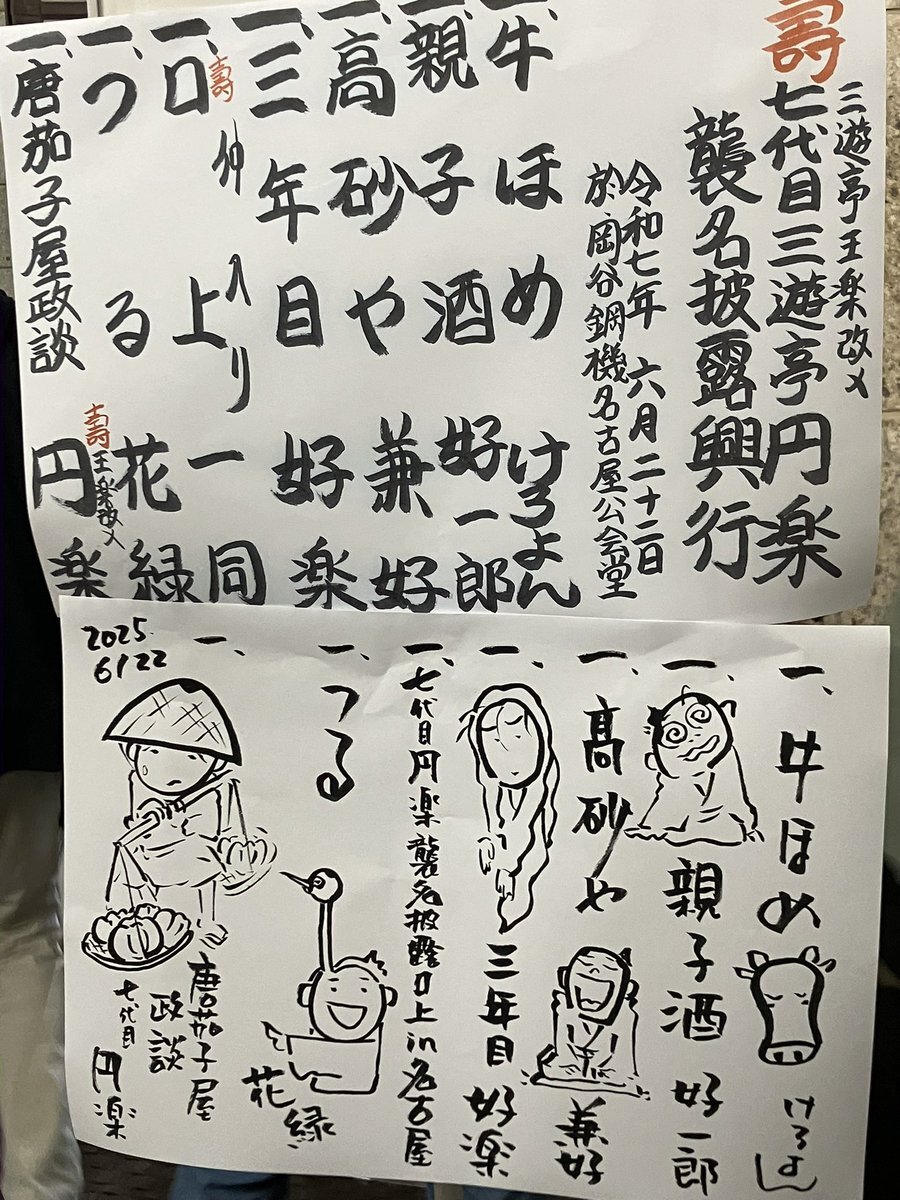 壽
三遊亭王楽改メ
七代目三遊亭円楽
襲名披露興行
令和七年 六月二十二日
於岡谷鋼機名古屋公会堂
一、牛ほめ けろよん
一、親子酒 好一郎
一、高砂や 兼好
一、三年目 好楽
仲入り
壽
一、口上 一同
一、つる 花緑
一、唐茄子屋政談
壽
王楽改メ
円楽
一、牛ほめ けろよん
一、親子酒 好一郎
一、髙砂や 兼好
一、三年目 好楽
一、七代目円楽襲名披露口上in名古屋
一、つる 花緑
一、唐茄子屋
政談
七代目 円楽
2025.
6/22